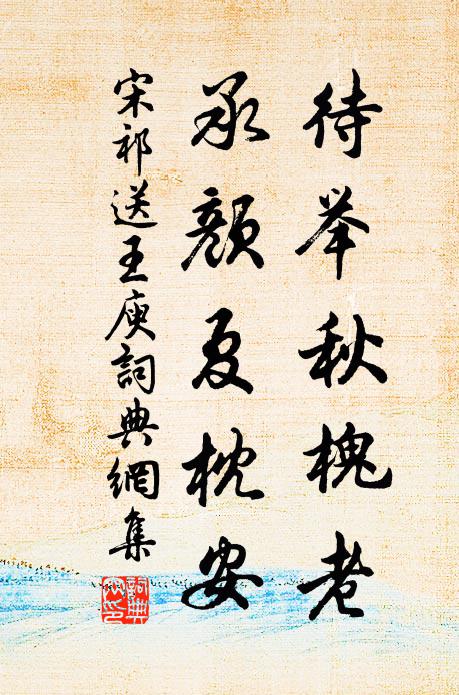 待举秋槐老
承颜夏枕安
宋祁送王庾詞典網集